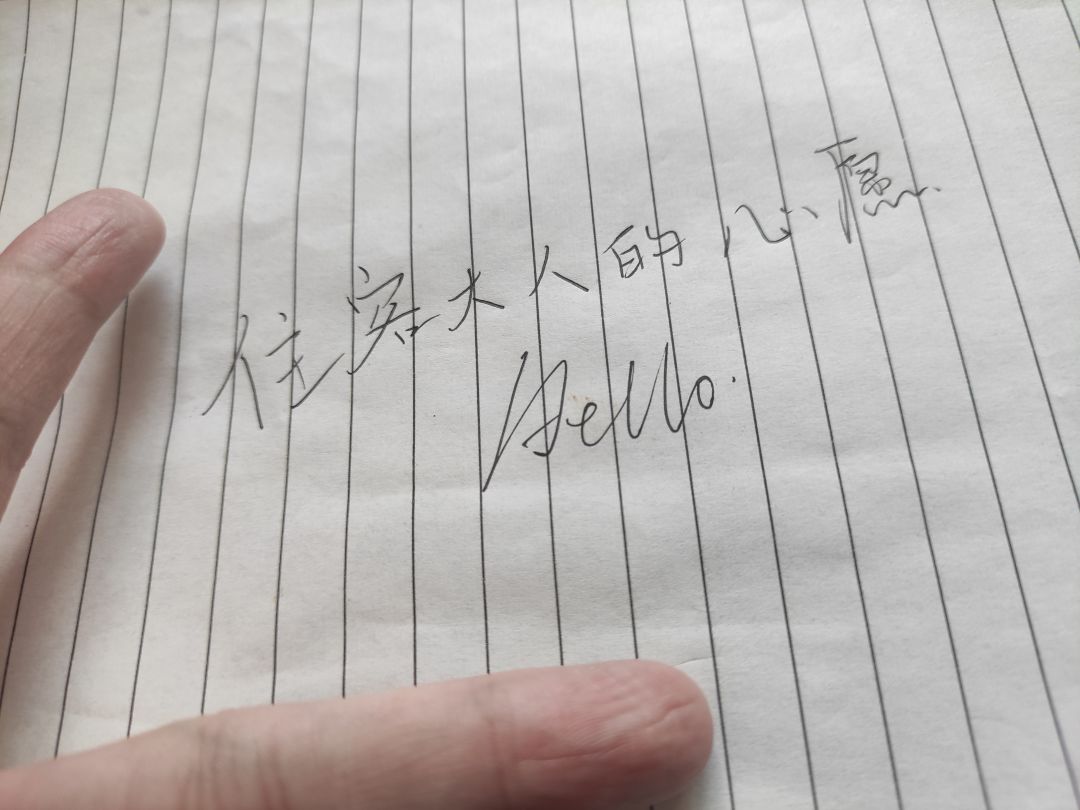 住客大人的心愿
Hello.